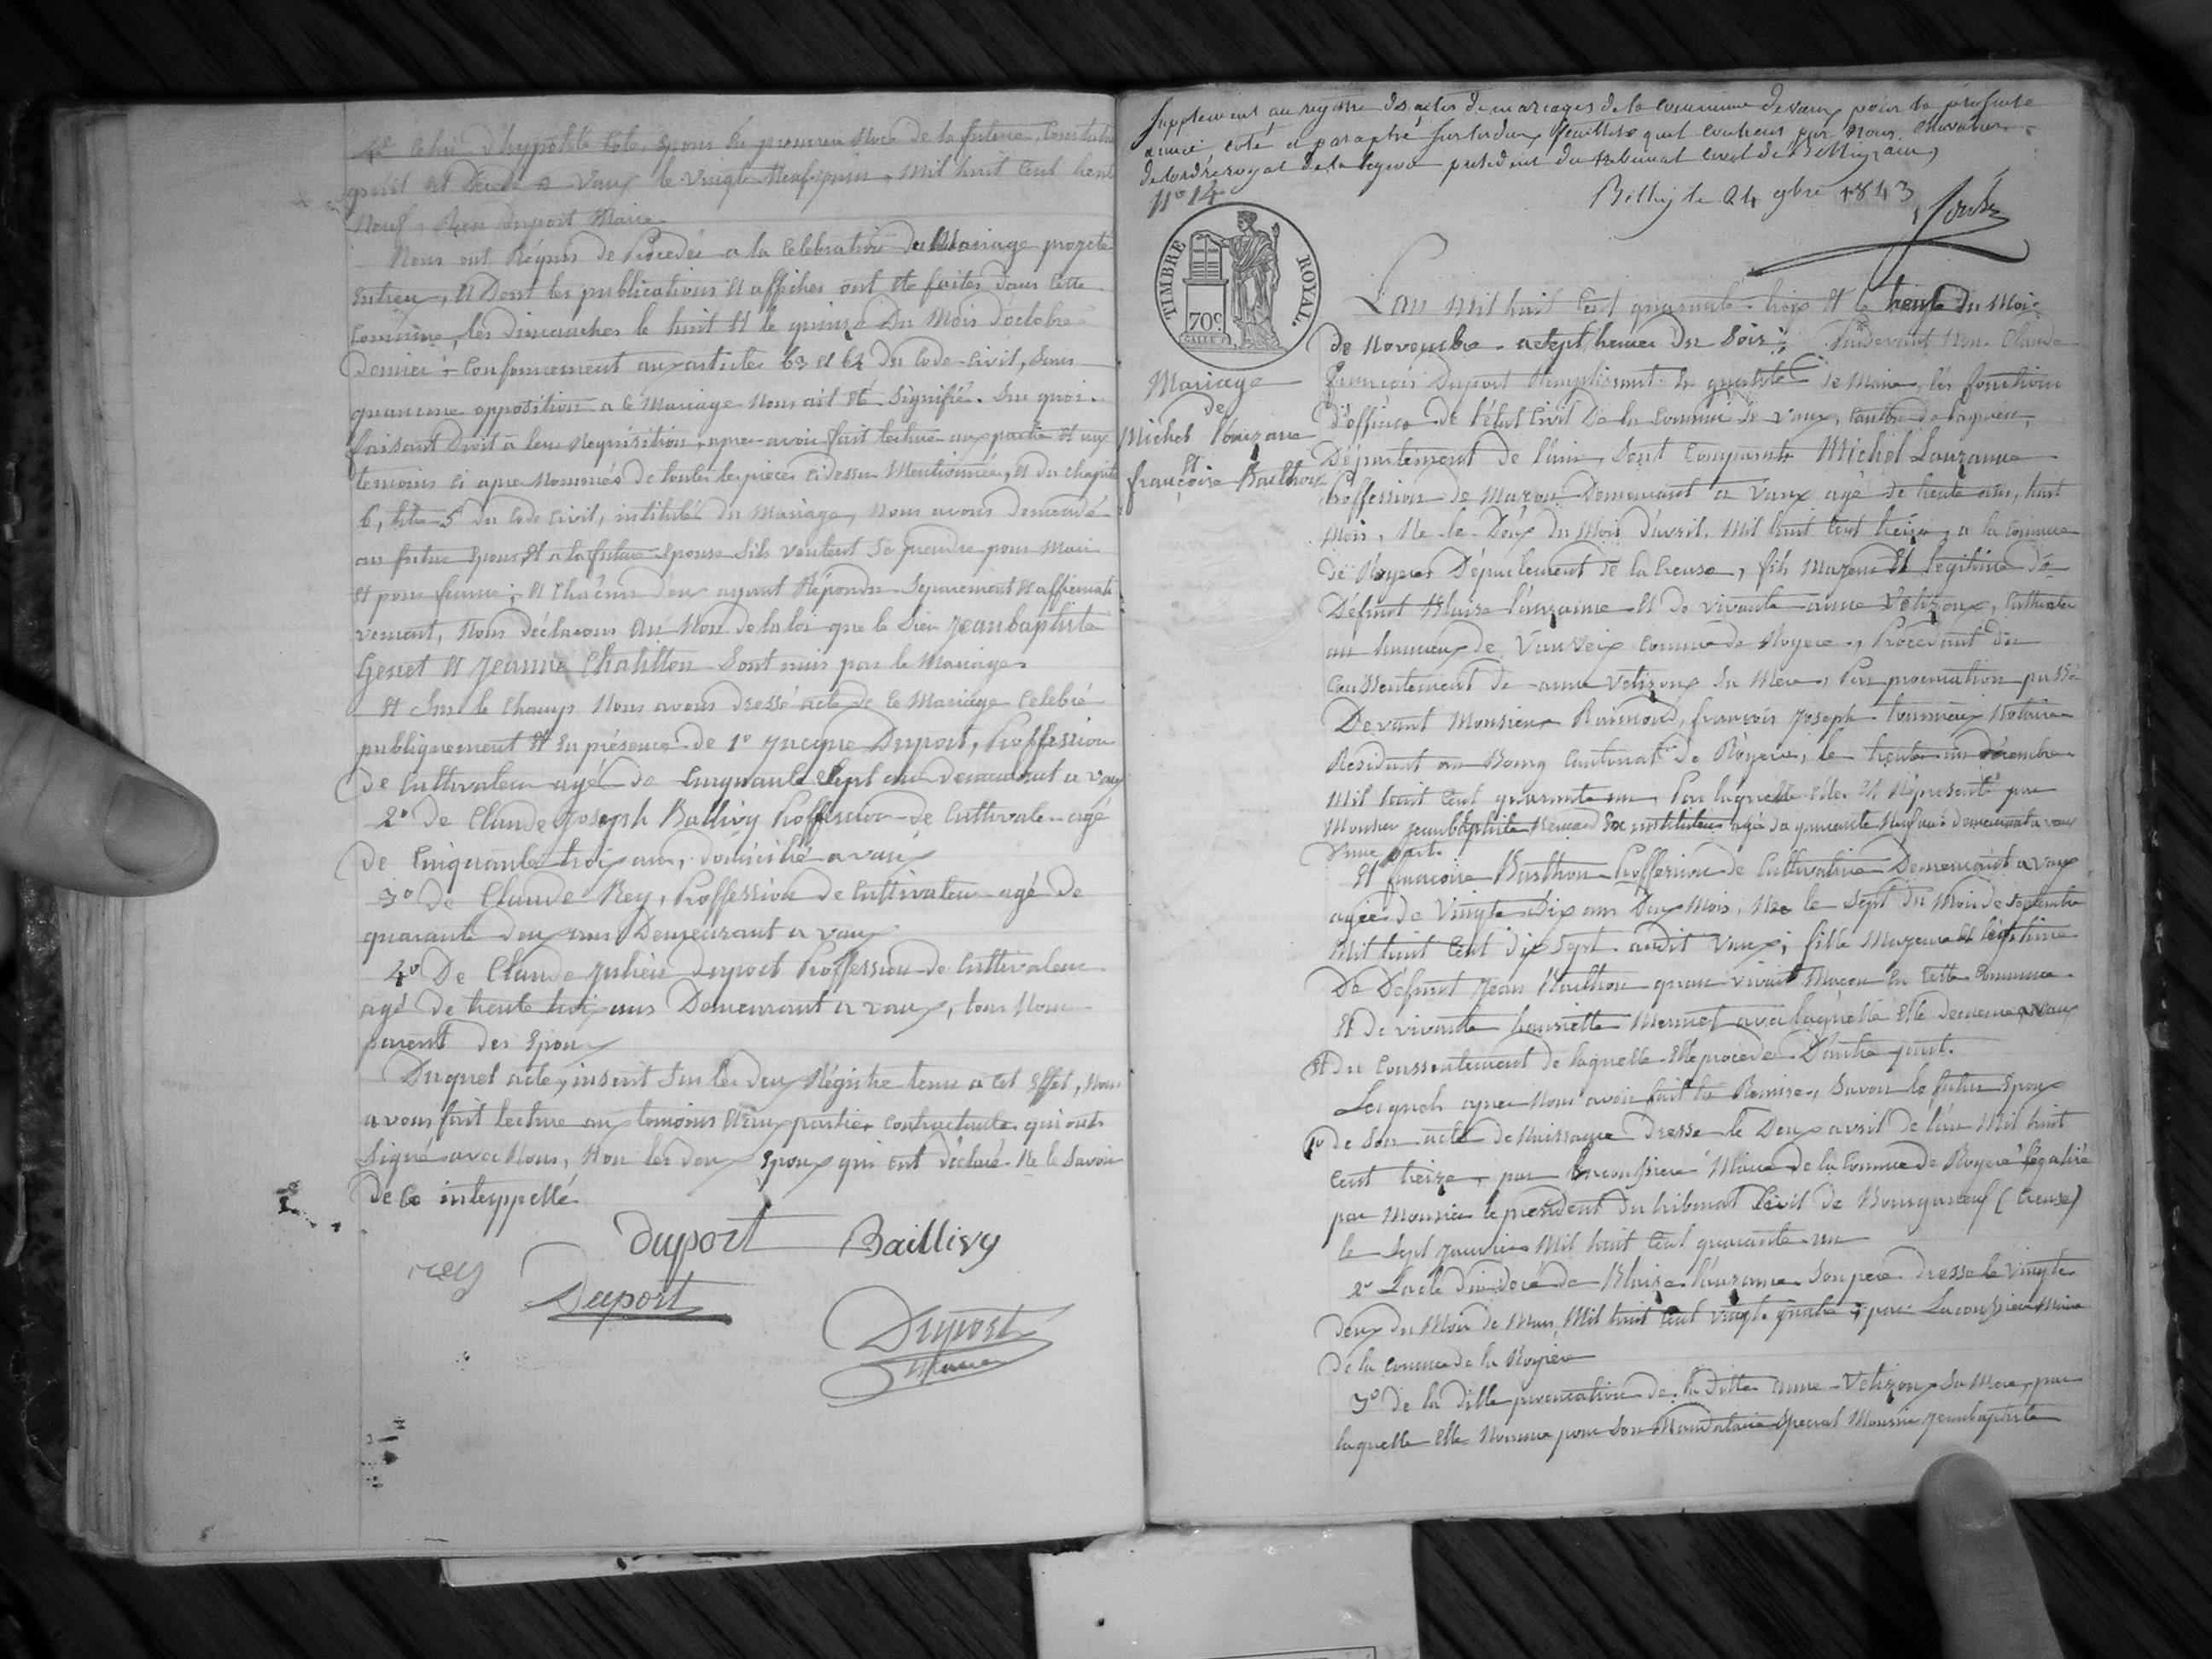 4° Celui d'hypolite Cote Epoux En premiere Noce de la future, Constatant
quil Est Decedé a Vaux le Vingt Neuf juin, Mil huit Cent trente
Neuf, Duport Maire
Nous ont Réquis de Procéder a la Celebration du Mariage projeté
Entreux, Et Dont les publications Et affiches ont Eté faites dans Cette
Commune, les dimanches le huit Et le quinze Du Mois d'octobre
Dernier conformement aux articles 63 et 64 du Code Civil, Sans
quaucune opposition a Ce Mariage Nous ait Eté Signifié. Sur quoi
faisant Droit a leur Requisition, apres avoir fait lecture aux parties Et aux
temoins Ci apres Nommés de toutes les pieces Cidessus Mentionnées, Et du chapitre
6, titre 5 du Code Civil, intitulé du Mariage, Nous avons demandé
au futur Epoux, Et a la future Epouse Sils veulent Se prendre pour Mari
Et pour femme; Et Chacun d'eux ayant Répondu Separement Et affirmati
vement, Nous Déclarons Au Nom de la loi que le Sieur Jeanbaptiste
Genet Et Jeanne Chatillon Sont unis par le Mariage
Et Sur le Champ Nous avons dressé acte de Ce Mariage Celebré
publiquement Et En présence de 1° Jacque Duport, Proffession
de Cultivateur agé de Cinquante Sept ans demeurant a Vaux
2° De Claude Joseph Ballivy Proffession de Cultivateur agé
de Cinquante trois ans, domicilié a vaux
3° De Claude Rey, Proffession de Cultivateur agé de
quarante deux ans Demeurant a vaux
4° De Claude Julien Duport Proffession de Cultivateur
agé de trente trois ans Demeurant a vaux, tous Non
parent des Epoux
Duquel acte, inscrit Sur les deux Régistre tenu a Cet Effet, Nous
avons fait lecture aux temoins Et aux parties Contractantes qui ont
Signé avec Nous, Non les deux Epoux qui ont déclaré Ne le Savoir
De Ce interppellé
Duport Baillivy
rey
Duport
Duport
Maire
Supplement au registre des actes de mariages de la Commune de vaux pour la présente
année coté et paraphé sur les deux feuillets quil contient par Nous Chevalier
de lordre royal de la legion president du tribunal civil de Belley (ain)
Belley le 24 9bre 1843
N° 14
TIMBRE ROYAL.
70c
Mariage
de
Michel Lauzane
et
françoise Barthou
L'an Mil huit Cent quarante trois Et le trente du Mois
de Novembre a Sept heures du Soir; Pardevant Nous Claude
François Duport Remplissant En qualité de Maire, les fonctions
d'officier de l'état Civil De la Commune de Vaux, Canton de lagnieu,
Département de l'ain, Sont Comparants Michel Lauzanne
Proffession de Maçon Demeurant a Vaux agé de trente ans, huit
Mois, Né le Deux du Mois d'avril, Mil huit Cent treize, a la Commune
de Royere Département de la Creuse, fils Majeur Et Legitime de
Défunt Blaise Lauzanne Et de vivante anne Velizoux, Cultivateur
au hameau de Vauveix Commune de Royere, Procedant du
Consentement de anne Velizoux Sa Mere, Par procuration passé
Devant Monsieur Raimond, françois Joseph Notaire
Resident au Bourg Cantonal de Royere, le trente un décembre
Mil huit Cent quarante un, Par laquelle Elle Est Représenté par
Monsieur Jeanbaptiste Renaud Ex instituteur agé de quarante Neuf ans demeurant a vaux
D'une part.
Et françoise Barthou Proffession de Cultivatrice Demeurant a vaux
agée de Vingt Six ans Deux Mois, Née le Sept Du Mois de Septembre
Mil huit Cent dix Sept audit Vaux; fille Majeure Et légitime
De Défunt Jean Barthou quand vivait Maçon En Cette Commune
Et de vivante henriette Mermet avec laquelle Elle demeure a vaux
Et du Conssentement de laquelle Elle procede D'autre part.
Lesquels apres Nous avoir fait la Remise, Savoir le futur Epoux
1° de Son acte de Naissance Dressé le Deux avril de l'an Mil huit
Cent treize, par Maire de la Commune de Royere légalisé
par Monsieur le president du tribunal Civil de Bourganeuf (Creuse)
le Sept Janvier Mil huit Cent quarante un
2° L'acte de décé de Blaise Lauzanne Son pere dressé le Vingt
deux du Mois de Mars, Mil huit Cent vingt quatre, par Maire
de la Commune de la Royere
3° de la ditte procuration de la ditte anne Velizoux Sa Mere, par
laquelle Elle Nomme pour Son Mandataire Special Monsieur Jeanbaptiste